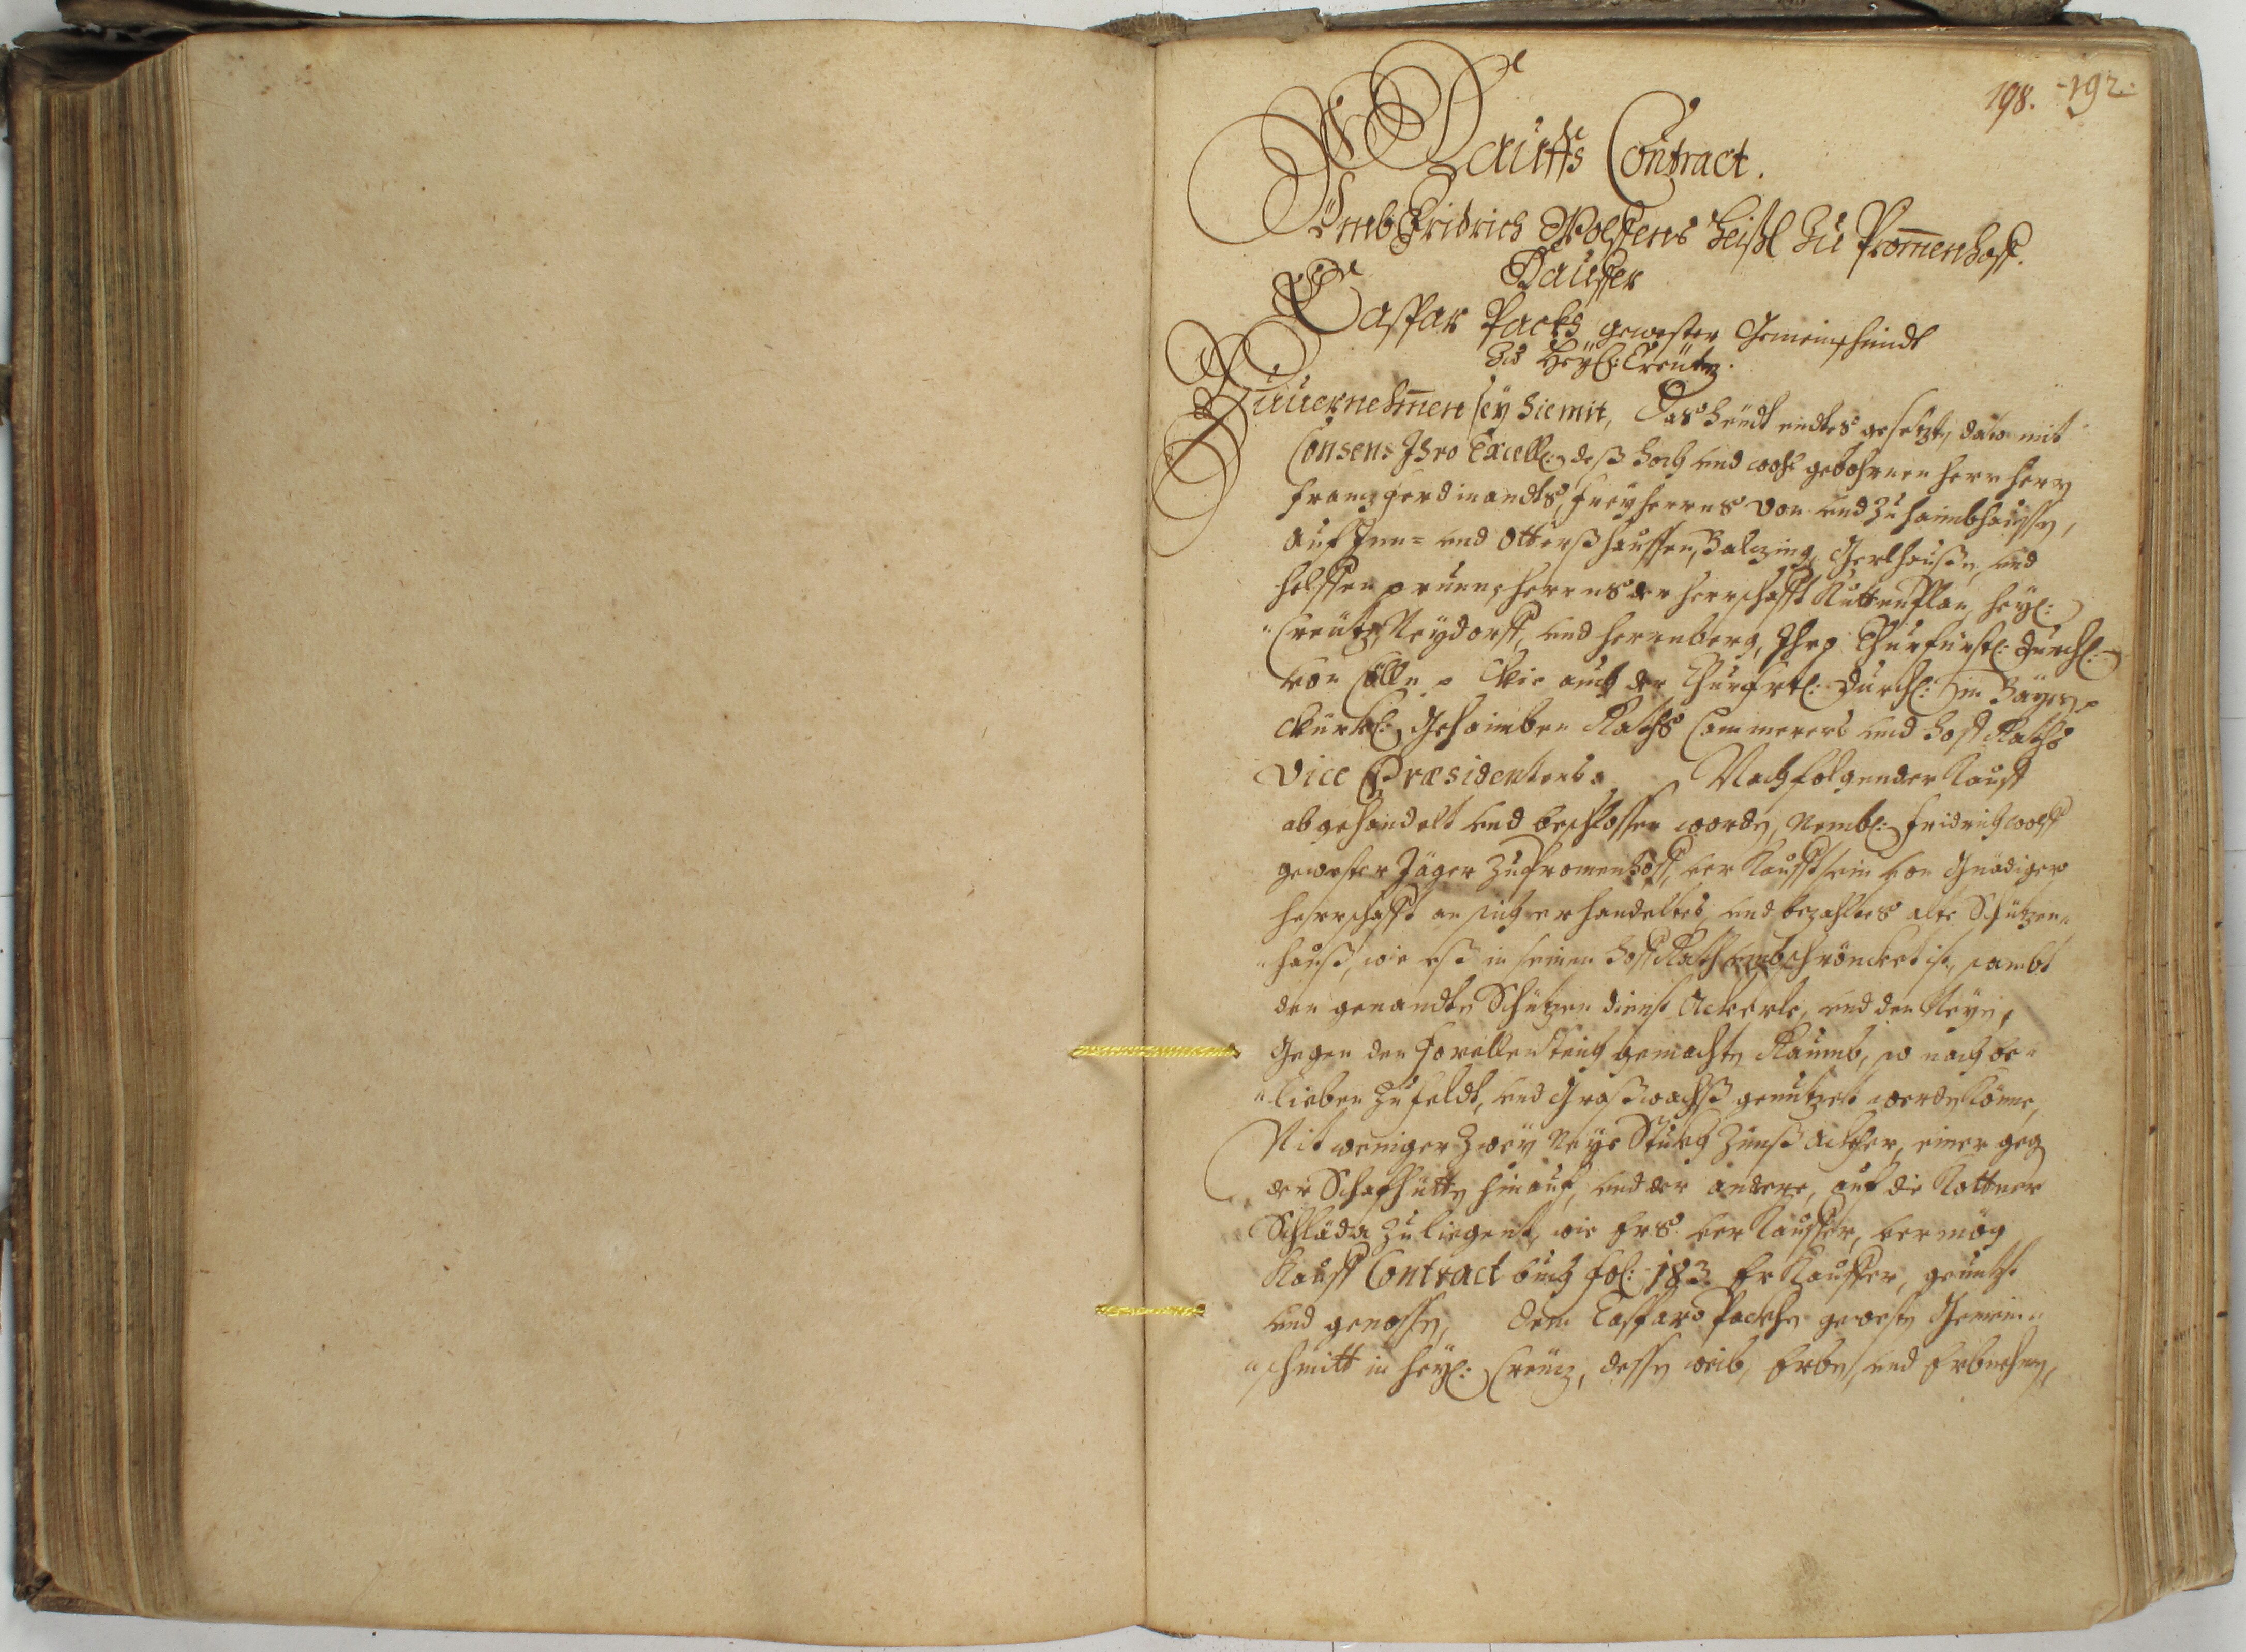 198. 192.
Kauffs Contract.
Umb Fridrich Wolffens heißl Zu Promenhoff.
Kauffer
Caspar Packh gewester Gemeinschmidt
Zu Heyl: Creütz.
Zuuernehmen sey hiemit, Das heudt endtes gesetzten dato mit
Consens Ihro Excell: deß hoch und wohl gebohrnen herrn herrn
Franz Ferdinandts, Freyherrns von und zu Haimbhaußen,
auf Inn= und Otterßhaußen, Gerlhaußen, und
herrns der herrschafft Kuttenplan, Heyl:
Creütz, Neydorff, und herrnberg, Ihro Churfürstl: Durchl:
von Cölln Wie auch der Churfrtl: Durchl: in Bayrn
Würkhl: Gehaimben Raths Cammerers und Hoff Raths
Vice Præsidentens Nachfolgender Kauff
abgehandelt und beschlossen worden, Nembl: Fridrich Wolff
gewester Jäger zu Promenhoff, ver Kaufft sein von Gnädiger
herrschafft an sich erhandeltes, und bezahltes alte Schützen=
hauß, wie eß in seinen umbschröncket ist, sambt
den genandten Schützen dienst Äckerle, und den Neyen,
Gegen den Forellen teich gemachten Raumb, so nach be=
lieben zu feldt, und Graßwachß genutzet werden könne,
Nit weniger Zwey Neye Stückh Zinß Äckher, einer gegen
der Schafhütten hinauf, und der andere, auf die Kottner
zu liegent, wie Ers ver Kauffer, vermög
Kauff Contract buch fol: 183 Er Kauffer, genutzt
und genossen, dem Casparo Packhen gewesten Gemein=
schmitt in Heyl: Creutz, dessen weib, Erben, und Erbnehmen,